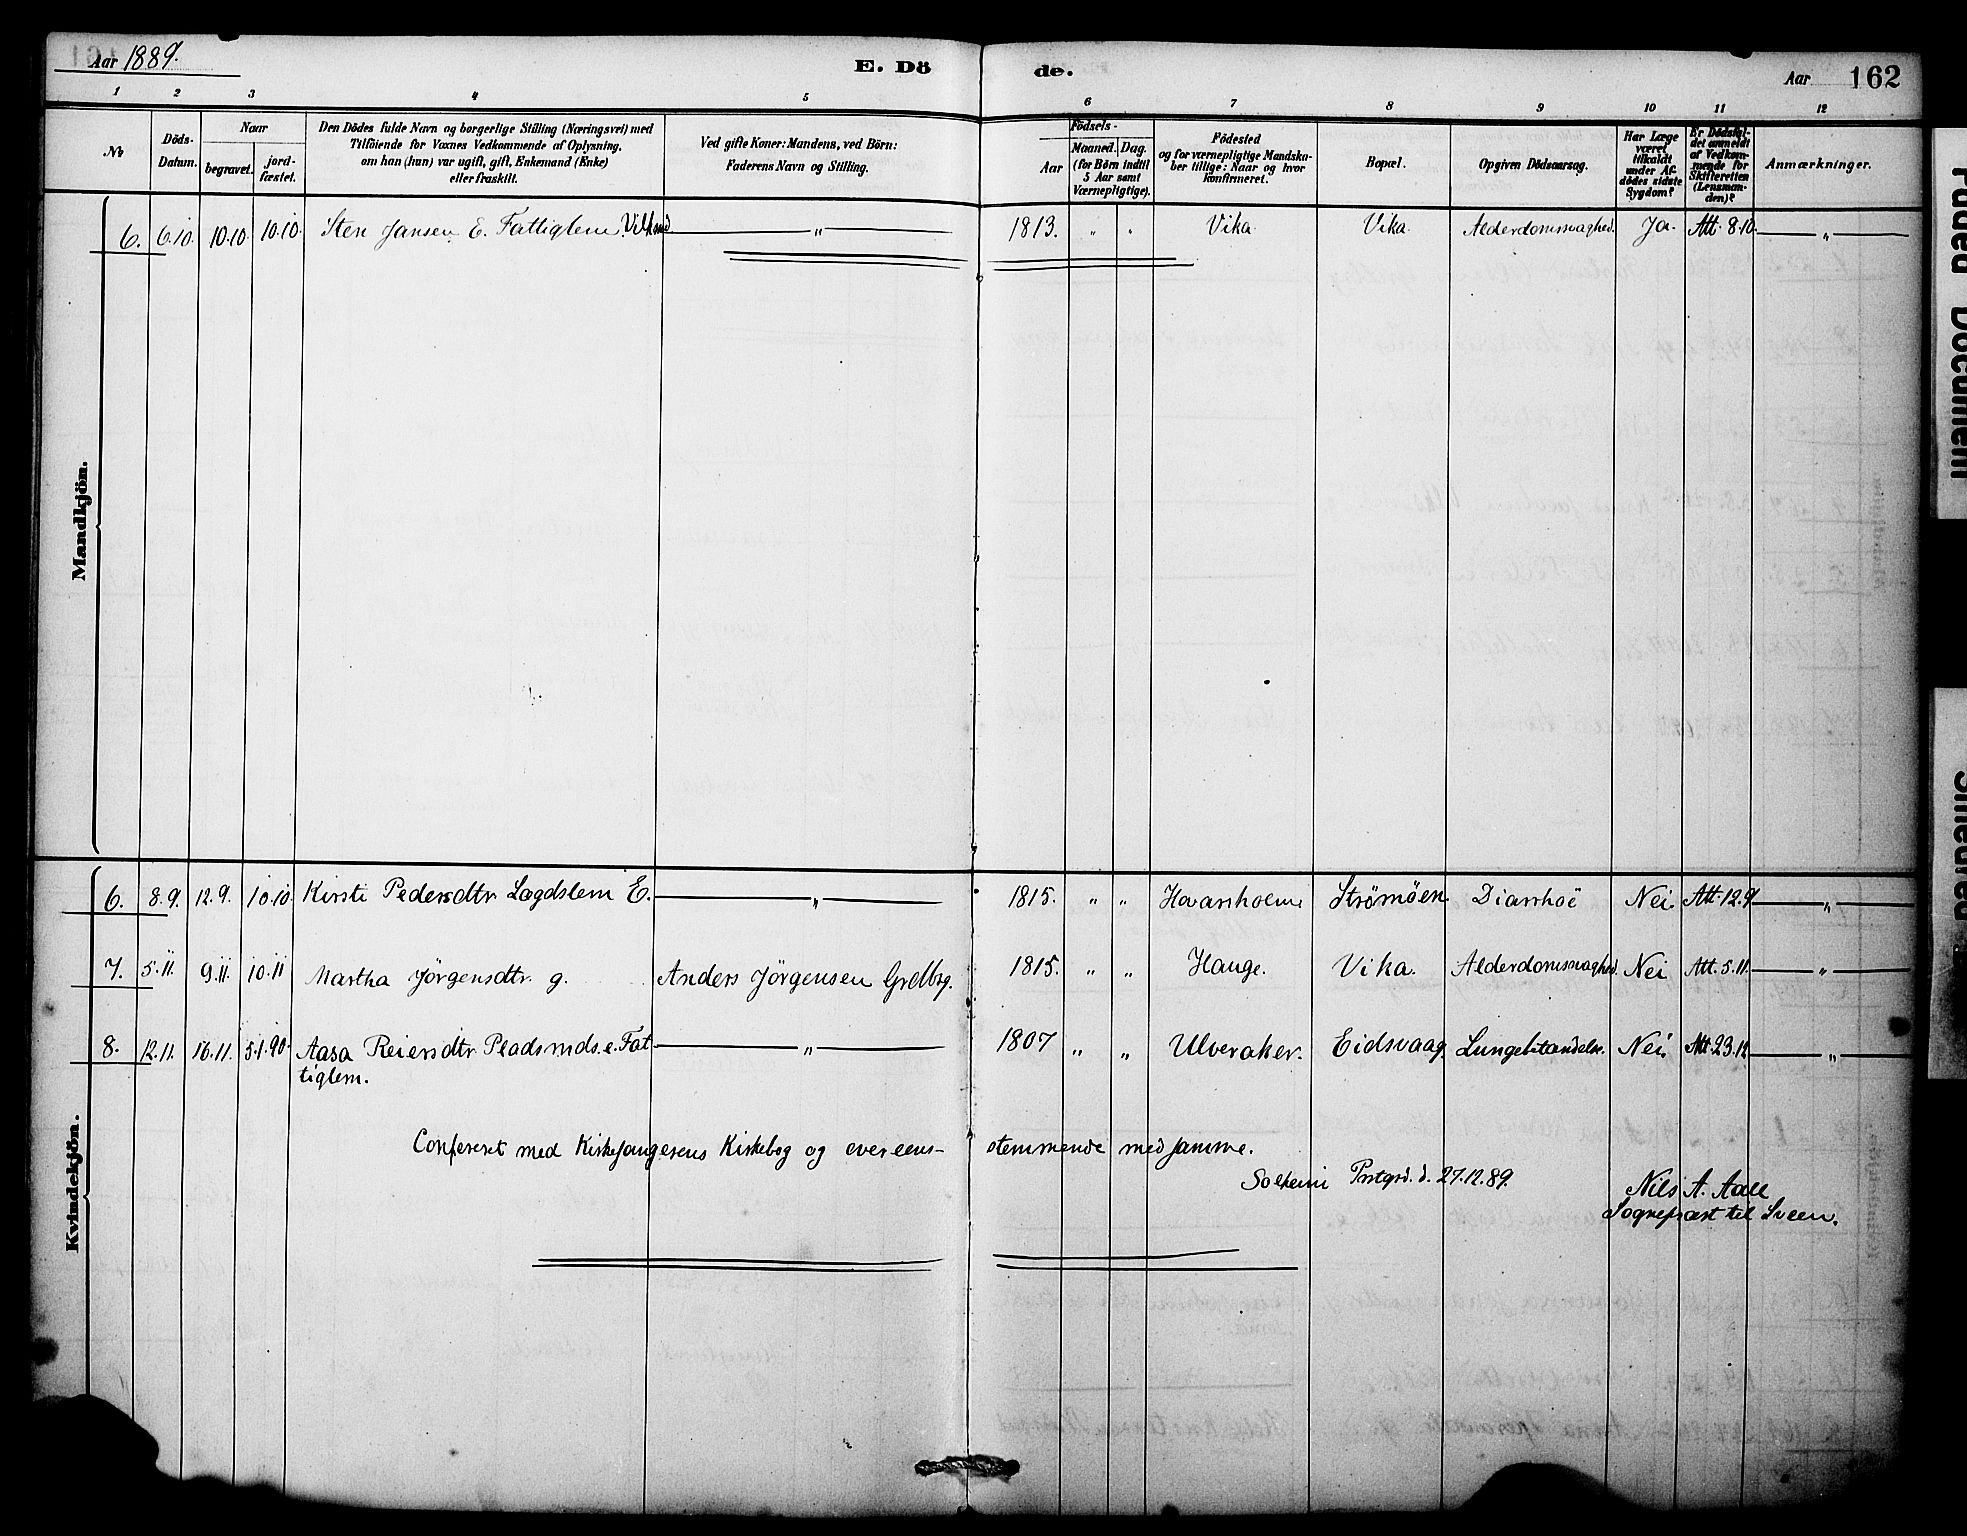 Aar 1889.
E. Dö
de.
Aar
162
1 2 3 4 5 6 7 8 9 10 11 12
Nr
Döds-
Datum.
Naar
begravet.
jord-
fæstet.
Den Dödes fulde Navn og borgerlige Stilling (Næringsvei) med
Tilföiende for Voxnes Vedkommende af Oplysning,
om han (hun) var ugift, gift, Enkemand (Enke)
eller fraskilt.
Ved gifte Koner: Mandens, ved Börn:
Faderens Navn og Stilling.
Födsels-
Aar
Maaned. Dag.
(for Börn indtil
5 Aar samt
Værnepligtige).
Födested
og for værnepligtige Mandska-
ber tillige: Naar og hvor
konfirmeret.
Bopæl.
Opgiven Dödsaarsag.
Har Læge
været
tilkaldt
under Af-
dödes sidste
Sygdom?
Er Dödsfal-
det anmeldt
af Vedkom-
mende for
Skifteretten
(Lensman-
den)?
Anmærkninger.
Mandkjön.
6. 6.10 10.10. 10.10. Sten Jansen E. Fattiglem. " 1813. " " Vika Vika. Alderdomssvaghed. Ja. Att. 8.10. "
Kvindekjön.
6. 8.9. 12.9. 10.10 Kirsti Pedersdtr Lægdslem E. " 1815. " " Strømöen. Diarrhoë Nei. Att. 12.9. "
7. 5.11. 9.11. 10.11 Martha Jörgensdtr. g. Anders Jörgensen 1815. " " Hauge. Vika. Alderdomssvaghed. Nei Att. 5.11. "
8. 12.11. 16.11. 5.1.90. Aasa Reiersdtr. Pladsmds.e. Fat- " 1807 " " Ulveraker. Eidsvaag. Nei. Att. 23.12 "
tiglem.
Confereret med Kirkesangerens Kirkebog og overeens- stemmende med samme.
Solheim Prstgrd. d. 27.12.89.
Nils A. Aall
Sognepræst til Sveen.
Faded Document